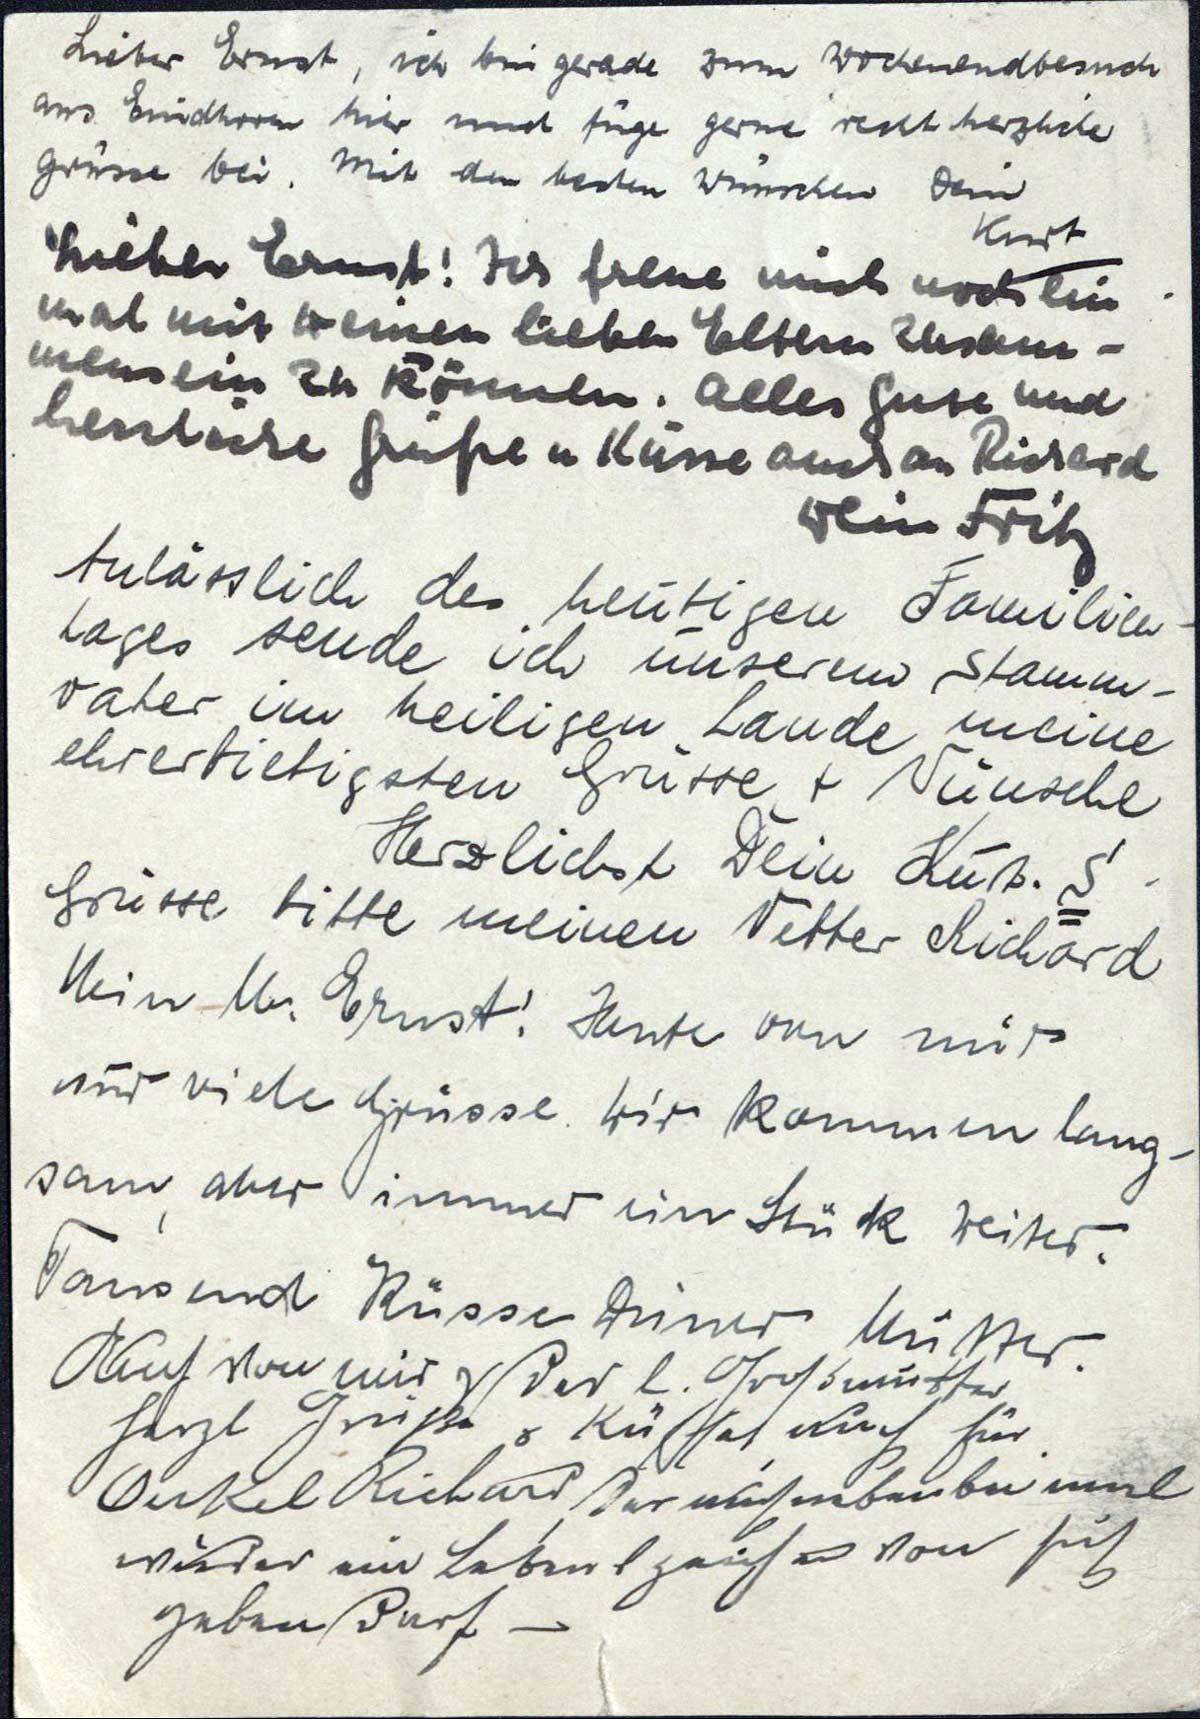 Lieber Ernst, ich bin gerade zum Wochenendbesuch
aus Eindhoven hier und füge gerne recht herzliche
grüsse bei. Mit den besten Wünschen Dein
Kurt
Lieber Ernst! Ich freue mich noch ein
mal mit Deinen lieben Eltern zusam-
mensein zu können. Alles Gute und
herzliche Grüße u Küsse auch an Richard
Dein Fritz
Anlässlich des heutigen Familien-
tages sende ich unserem Stamm-
vater im heiligen Lande meine
ehrerbietigsten Grüsse + Wünsche
Herzlichst Dein Kurt. S
Grüsse bitte meinen Vetter Richard
Mein lb. Ernst! Heute von mir
nur viele Grüsse. Wir kommen lang-
sam, aber immer ein Stück weiter.
Tausend Küsse Deiner Mutter.
Auch von mir & der l. Großmutter
herzl Grüße & Küsse, auch für
Onkel Richard, der auch nebenbei mal
wieder ein Lebenszeichen von sich
geben darf —